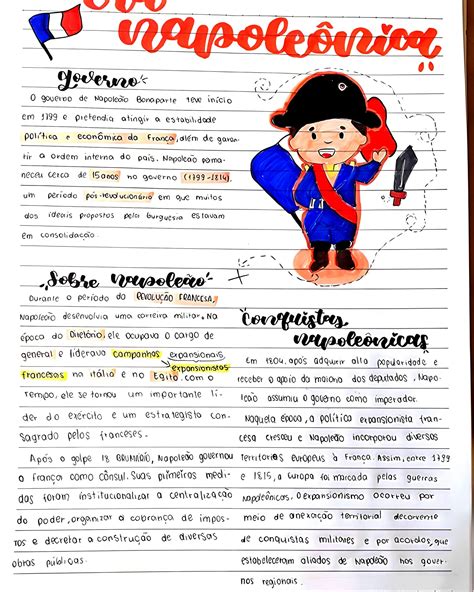 Era
napoleônica
Governo
O governo de Napoleão Bonaparte teve início
em 1799 e pretendia atingir a estabilidade
política e econômica da França, além de garan-
tir a ordem interna do país. Napoleão perma-
neceu cerca de 15 anos no governo (1799-1814),
um período pós-revolucionário em que muitos
dos ideais propostos pela burguesia estavam
em consolidação.
Sobre napoleão
Durante o período da REVOLUÇÃO FRANCESA,
Napoleão desenvolvia uma carreira militar. Na
época do Diretório, ele ocupava o cargo de
general e liderava campanhas expansionais
expansionistas
francesas na Itália e no Egito. Com o
tempo, ele se tornou um importante lí-
der do exército e um estrategista con-
sagrado pelos franceses.
Após o golpe 18 BRUMÁRIO, Napoleão governou
a França como cônsul. Suas primeiras medi-
das foram institucionalizar a centralização
do poder, organizar a cobrança de impos-
tos e decretar a construção de diversas
obras públicas.
Conquistas
napoleônicas
Em 1804, após adquirir alta popularidade e
receber o apoio da maioria dos deputados, Napo-
leão assumiu o governo como imperador.
Naquela época, a política expansionista fran-
cesa cresceu e Napoleão incorporou diversos
territórios europeus à França. Assim, entre 1799
e 1815, a Europa foi marcada pelas guerras
Napoleônicas. O expansionismo ocorreu por
meio de anexação territorial decorrente
de conquistas militares e por acordos, que
estabeleceram aliados de Napoleão nos gover-
nos regionais.